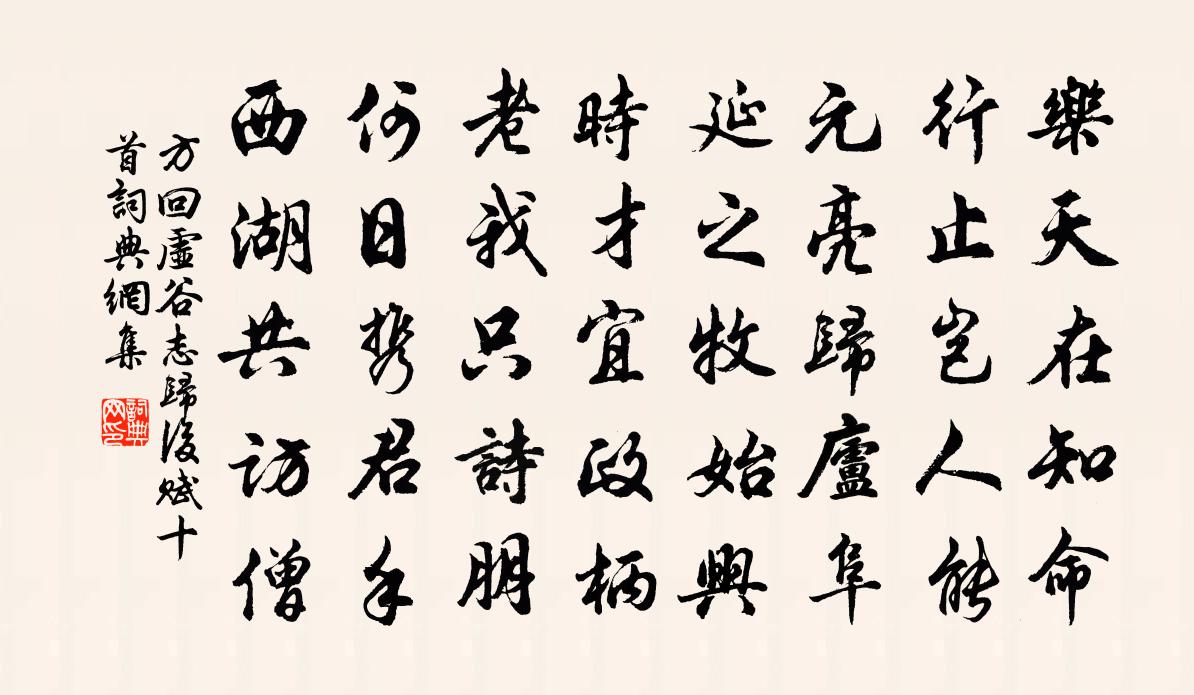 樂天在知命
行止豈人能
元亮歸廬阜
延之牧始興
時才宜政柄
老我只詩朋
何日携君手
西湖共訪僧
方回虛谷志歸後賦十
首詞典網集
詞典
网印